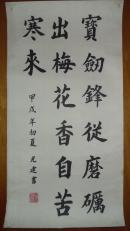 寶劍鋒從磨礪
出梅花香自苦
寒來
甲戌年初夏 光建書